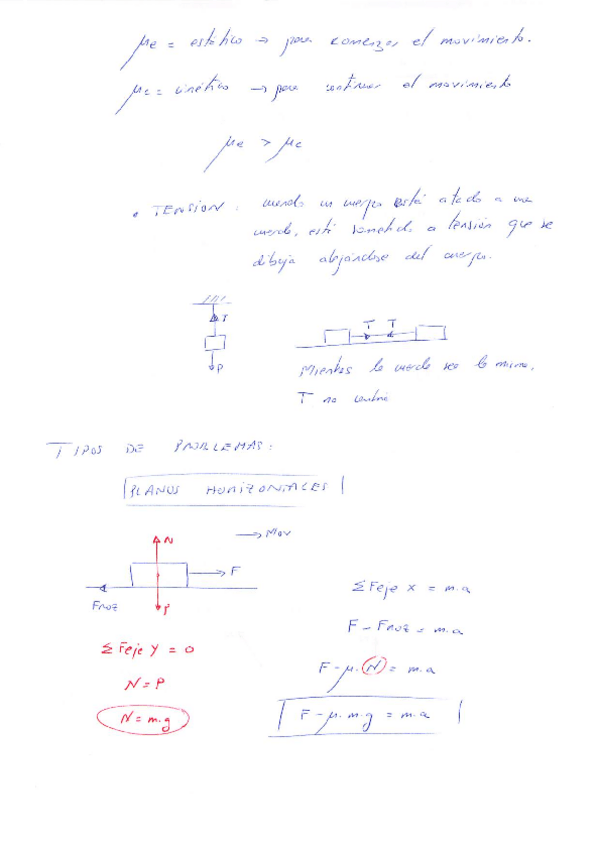 μe = estático → para comenzar el movimiento.
μc = cinético → para continuar el movimiento
μe > μc
• TENSION: cuando un cuerpo está atado a una
cuerda, está sometido a tensión que se
dibuja alejándose del cuerpo.
T
P
T T
Mientras la cuerda sea la misma,
T no cambia
TIPOS DE PROBLEMAS:
PLANOS HORIZONTALES
N
→ Mov
F
FROZ
P
Σ Feje X = m.a
F - FROZ = m.a
F - μ.N = m.a
F - μ.m.g = m.a
Σ Feje Y = 0
N = P
N = m.g